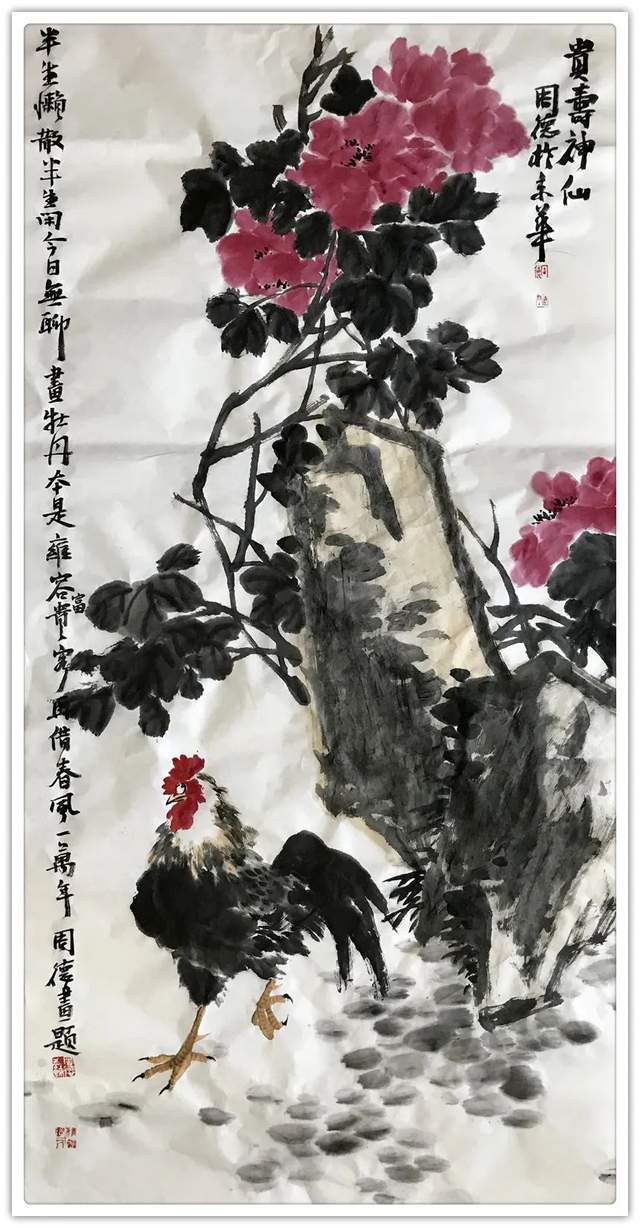 貴壽神仙
周德於華
半生懶散半生閑今日無聊畫牡丹本是雍容富貴客再借春風一萬年 周德畫題